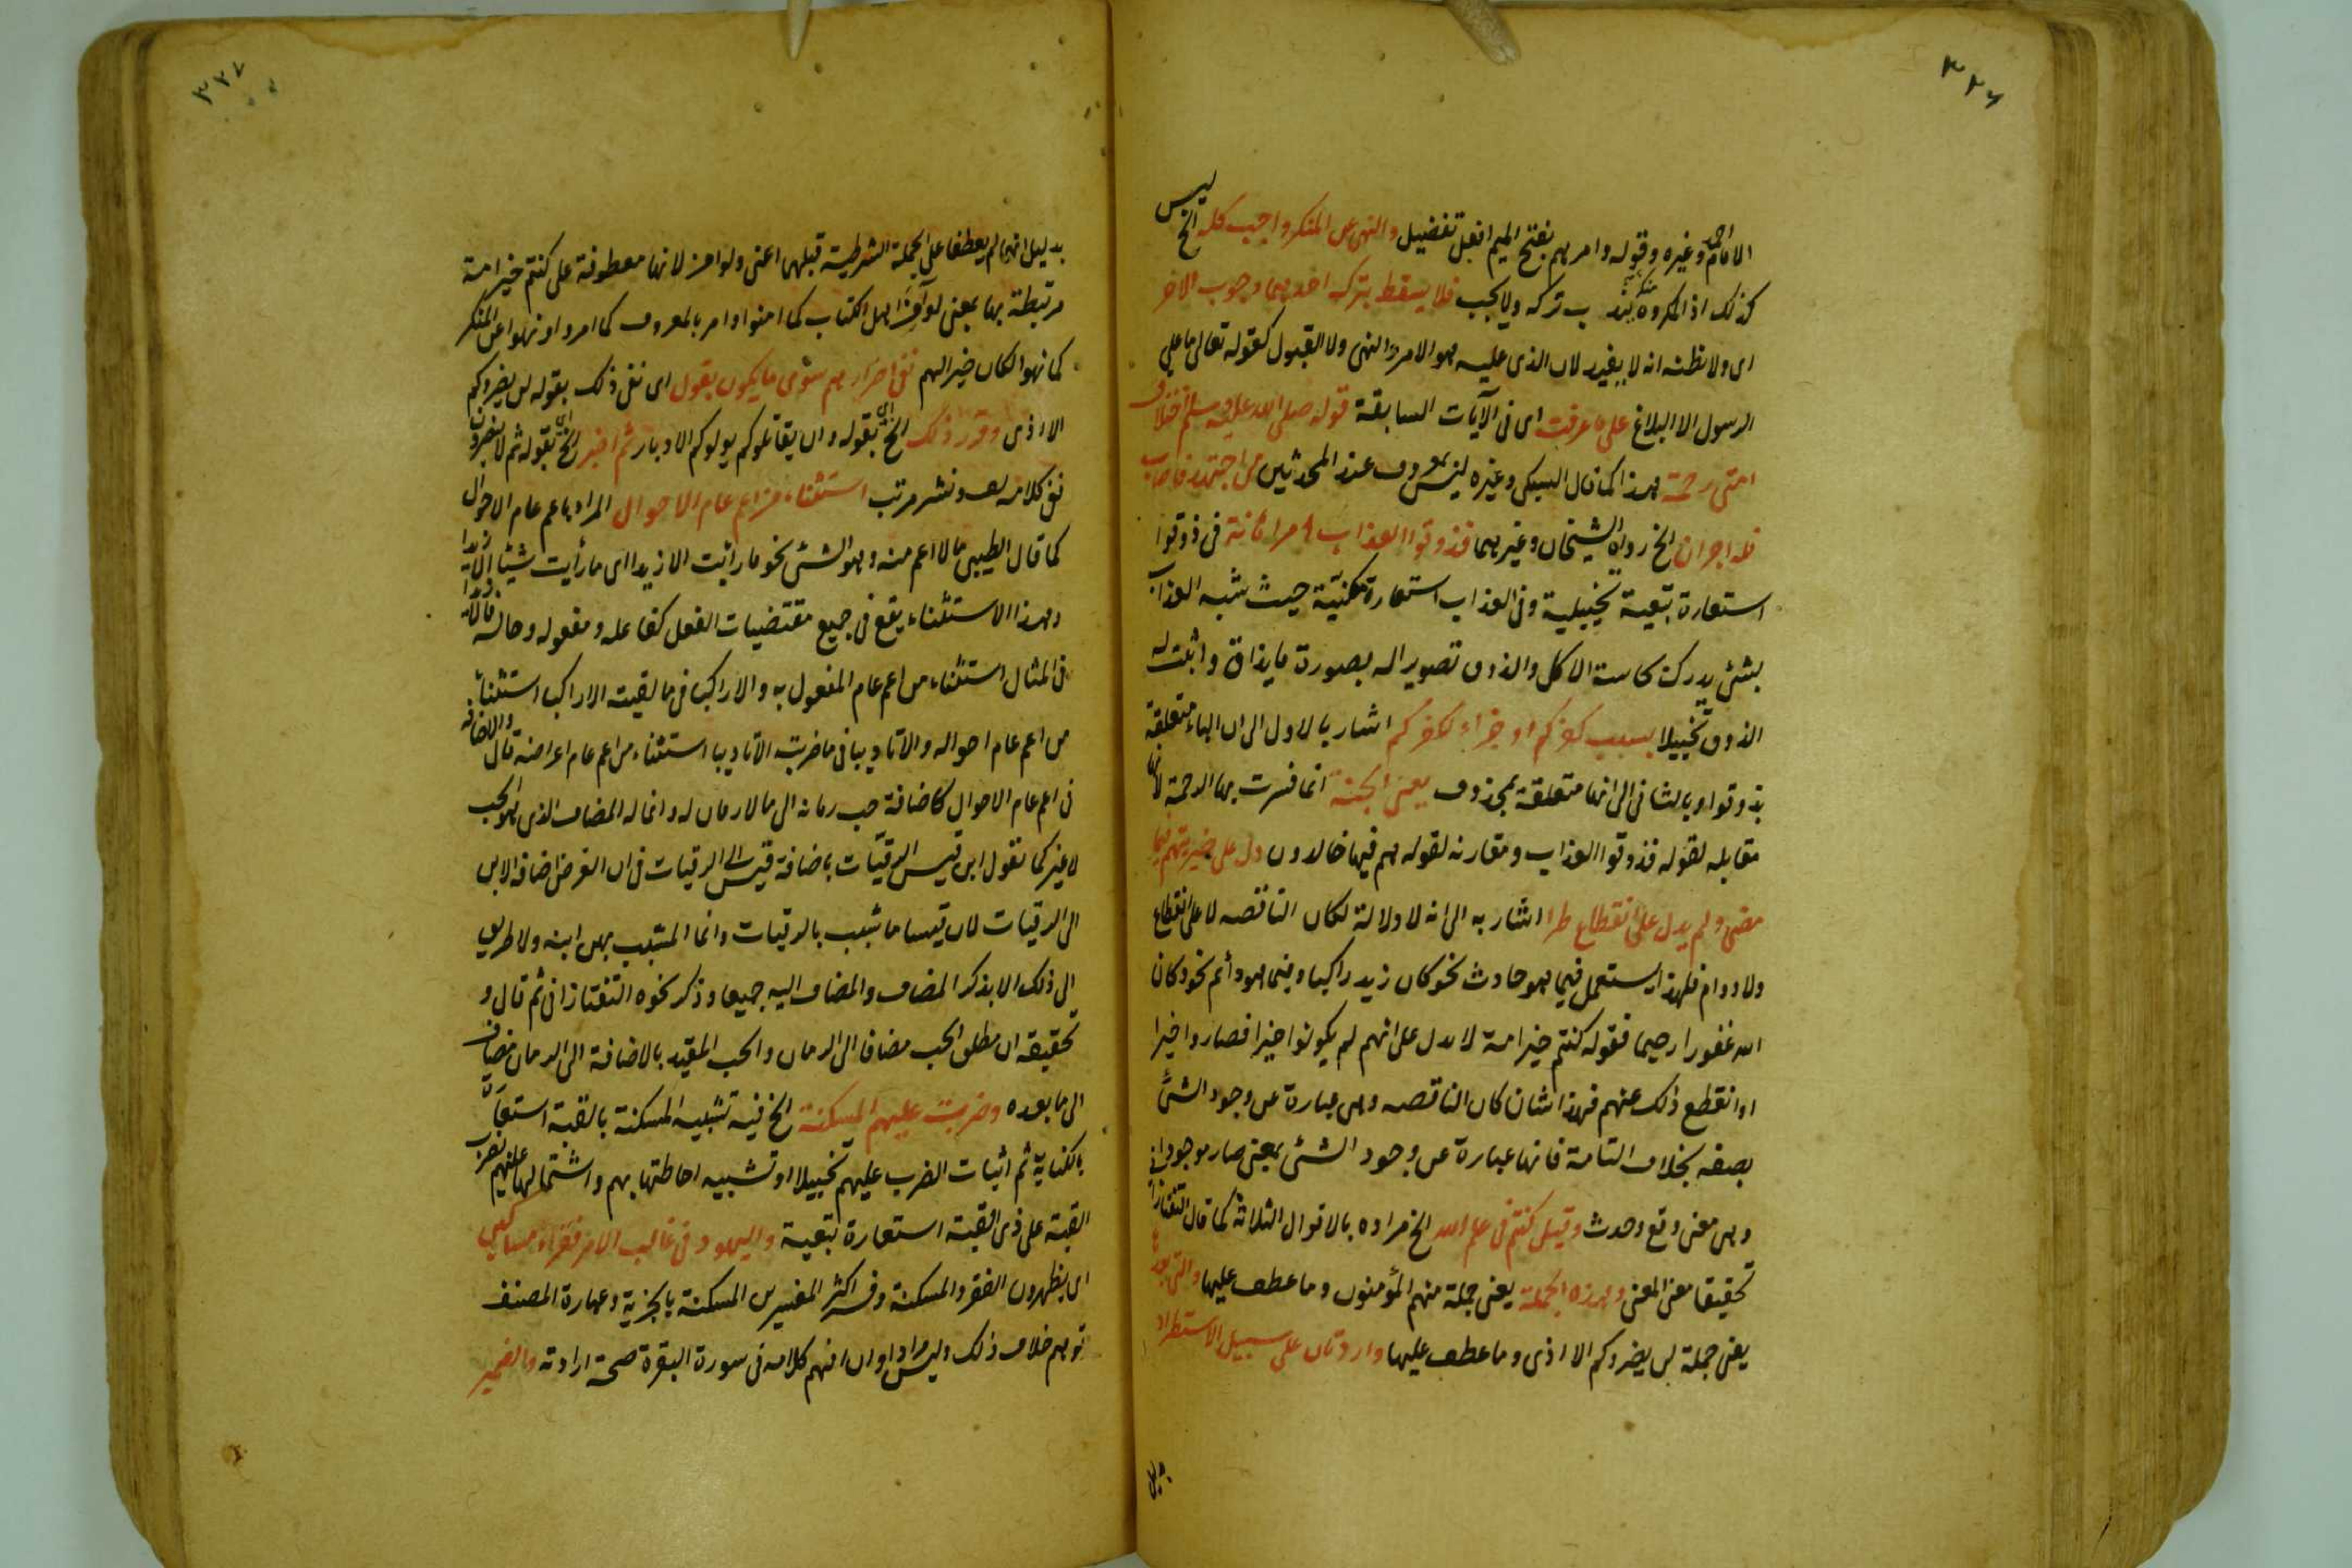 ٣٢٦
الامام احمد وغيره وقوله وامر بهم بفتح الميم افعل تفضيل والنهى عن المنكر واجب كله الخ ليس
كذلك اذ المكروه منكر يندب تركه ولا يجب فلا يسقط بترك احدهما وجوب الاخر
اى ولا نظنه انه لا يفيد لان الذى عليه هو الامر والنهى ولا القبول كقوله تعالى ما على
الرسول الا البلاغ على ما عرفت اى فى الآيات السابقة قوله صلى الله عليه وسلم اختلاف
امتى رحمة هذا كما قال السبكى وغيره ليس بمعروف عند المحدثين من اجتهد فاصاب
فله اجران الخ رواه الشيخان وغيرهما فذوقوا العذاب امر اهانة فى ذوقوا
استعارة تبعية تخييلية وفى العذاب استعارة مكنية حيث شبه العذاب
بشئ يدرك بحاسة الاكل والذوق تصويرا له بصورة ما يذاق واثبت له
الذوق تخييلا بسبب كفركم او جزاء لكفركم اشار بالاول الى ان الباء متعلقة
بذوقوا وبالثانى الى انها متعلقة بمحذوف يعنى الجنة انما فسرت بها الرحمة لانها
مقابله لقوله فذوقوا العذاب ومقارنه لقوله هم فيها خالدون دل على خيريتهم فيما
مضى ولم يدل على انقطاع طرا اشار به الى انه لا دلالة لكان الناقصه لا على انقطاع
ولا دوام فلهذا يستعمل فيما هو حادث نحو كان زيد راكبا وفيما هو دائم نحو وكان
الله غفورا رحيما فقوله كنتم خير امة لا يدل على انهم لم يكونوا خيرا فصاروا خيرا
او انقطع ذلك عنهم فهذا شان كان الناقصه وهى عبارة عن وجود الشئ
بصفه بخلاف التامة فانها عبارة عن وجود الشئ بمعنى صار موجودا
وهى معنى وقع وحدث وقيل كنتم فى علم الله الخ مراده بالاقوال الثلاثة كما قال التفتازانى
تحقيقا معنى المعنى وهذه الجملة يعنى جملة منهم المؤمنون وما عطف عليها والتى بعدها
يعنى جملة لن يضروكم الا اذى وما عطف عليها واردتان على سبيل الاستطراد
بدليل
٣٢٧
بدليل انهما لم يعطفا على الجملة الشرطية قبلهما اعنى ولو امن لانها معطوفة على كنتم خير امة
مرتبطة بها بمعنى لو آمن اهل الكتاب كما امنوا وامر بالمعروف كما امروا ونهوا عن المنكر
كما نهوا لكان خيرا لهم نفى اضرارهم سوى ما يكون بقول اى نفى ذلك بقوله لن يضروكم
الا اذى وقرر ذلك الخ اى بقوله وان يقاتلوكم يولوكم الادبار ثم اخبر الخ اى بقوله ثم لا ينصرون
ففى كلامه لف ونشر مرتب استثناء من اعم عام الاحوال المراد باعم عام الاحوال
كما قال الطيبى ما لا اعم منه وهو الشئ نحو ما رايت الا زيدا اى ما رأيت شيئا الا زيدا
وهذا الاستثناء يقع فى جميع مقتضيات الفعل كفاعله ومفعوله وحاله
فى المثال استثناء من اعم عام المفعول به والا راكبا فى ما لقيته الا راكبا استثناء
من اعم عام احواله والا تاديبا فى ما ضربته الا تاديبا استثناء من اعم عام اعراضه قال والاضافة
فى اعم عام الاحوال كاضافة حب رمانه الى مالا رمان له وانما له المضاف الذى هو الحب
لا غير كما تقول ابن قيس الرقيات باضافة قيس الى الرقيات فى ان الغرض اضافة الابن
الى الرقيات لان قيسا ما شبب بالرقيات وانما المشبب بهن ابنه ولا طريق
الى ذلك الا بذكر المضاف والمضاف اليه جميعا وذكر نحوه التفتازانى ثم قال و
تحقيقه ان مطلق الحب مضافا الى الرمان والحب المقيد بالاضافة الى الرمان مضاف
الى ما بعده وضربت عليهم المسكنة الخ فيه تشبيه المسكنة بالقبة استعارة
بالكناية ثم اثبات الضرب عليهم تخييلا او تشبيه احاطتها بهم واشتمالها عليهم بضرب
القبة على ذى القبة استعارة تبعية واليهود فى غالب الامر فقراء مساكين
اى يظهرون الفقر والمسكنة وفسر اكثر المفسرين المسكنة بالجزية وعبارة المصنف
توهم خلاف ذلك وليس مرادا وان افهم كلامه فى سورة البقرة صحة ارادته والضمير